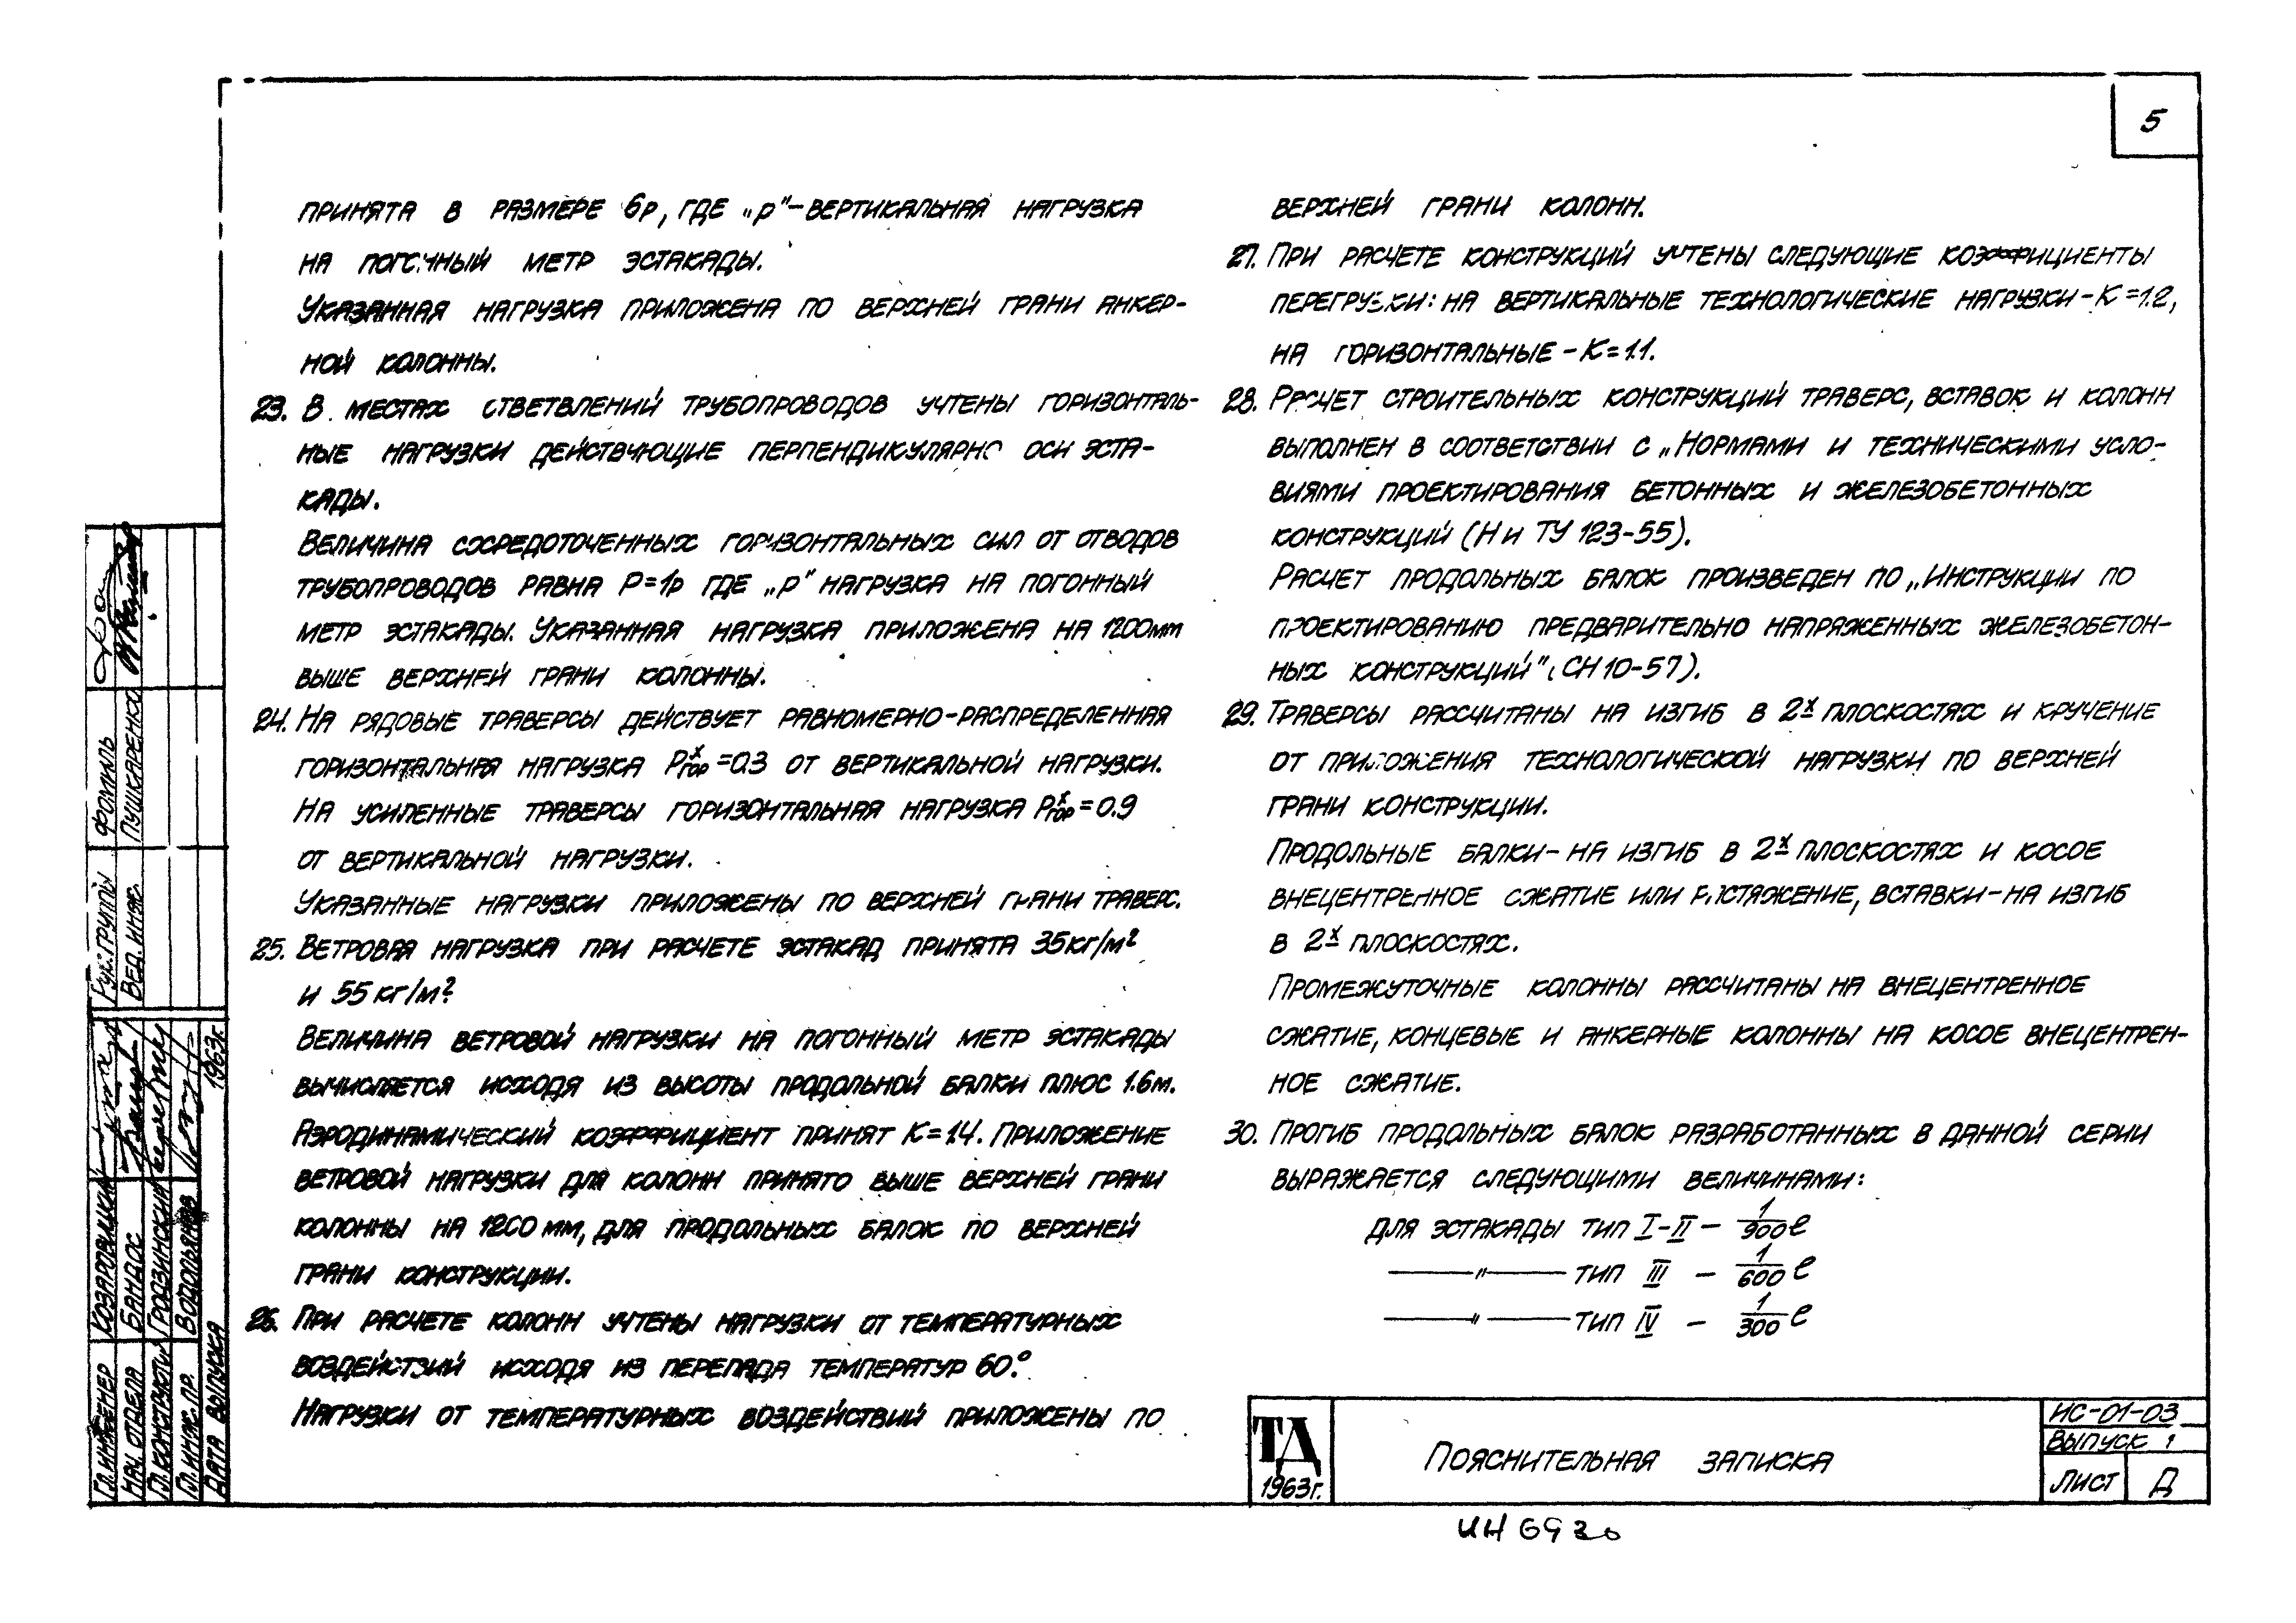 5
принята в размере 6р, где „р"-вертикальная нагрузка
на погонный метр эстакады.
Указанная нагрузка приложена по верхней грани анкер-
ной колонны.
23. В местах ответвлений трубопроводов учтены горизонталь-
ные нагрузки действующие перпендикулярно оси эста-
кады.
Величина сосредоточенных горизонтальных сил от отводов
трубопроводов равна Р=1р где „р" нагрузка на погонный
метр эстакады. Указанная нагрузка приложена на 1200мм
выше верхней грани колонны.
24. На рядовые траверсы действует равномерно-распределенная
горизонтальная нагрузка Pˣгор=0.3 от вертикальной нагрузки.
На усиленные траверсы горизонтальная нагрузка Pˣгор=0.9
от вертикальной нагрузки.
Указанные нагрузки приложены по верхней грани траверс.
25. Ветровая нагрузка при расчете эстакад принята 35кг/м²
и 55 кг/м².
Величина ветровой нагрузки на погонный метр эстакады
вычисляется исходя из высоты продольной балки плюс 1.6м.
Аэродинамический коэффициент принят К=1.4. Приложение
ветровой нагрузки для колонн принято выше верхней грани
колонны на 1200 мм, для продольных балок по верхней
грани конструкции.
26. При расчете колонн учтены нагрузки от температурных
воздействий исходя из перепада температур 60°.
Нагрузки от температурных воздействий приложены по
верхней грани колонн.
27. При расчете конструкций учтены следующие коэффициенты
перегрузки: на вертикальные технологические нагрузки-К=1.2,
на горизонтальные-К=1.1.
28. Расчет строительных конструкций траверс, вставок и колонн
выполнен в соответствии с „Нормами и техническими усло-
виями проектирования бетонных и железобетонных
конструкций (Н и ТУ 123-55).
Расчет продольных балок произведен по „Инструкции по
проектированию предварительно напряженных железобетон-
ных конструкций" (СН 10-57).
29. Траверсы рассчитаны на изгиб в 2ˣ плоскостях и кручение
от приложения технологической нагрузки по верхней
грани конструкции.
Продольные балки-на изгиб в 2ˣ плоскостях и косое
внецентренное сжатие или растяжение, вставки-на изгиб
в 2ˣ плоскостях.
Промежуточные колонны рассчитаны на внецентренное
сжатие, концевые и анкерные колонны на косое внецентрен-
ное сжатие.
30. Прогиб продольных балок разработанных в данной серии
выражается следующими величинами:
для эстакады тип I-II - 1/900 ℓ
—"— тип III - 1/600 ℓ
—"— тип IV - 1/300 ℓ
Рук. группы Фомиль
Вед. инж. Пушкаренко
Гл. инженер Козаровицкий
Нач. отдела Бандос
Гл. конструктор Гродзинский
Гл. инж. пр. Водольянов
Дата выпуска 1963г.
ТД
1963г.
Пояснительная записка
ИС-01-03
Выпуск 1
Лист Д